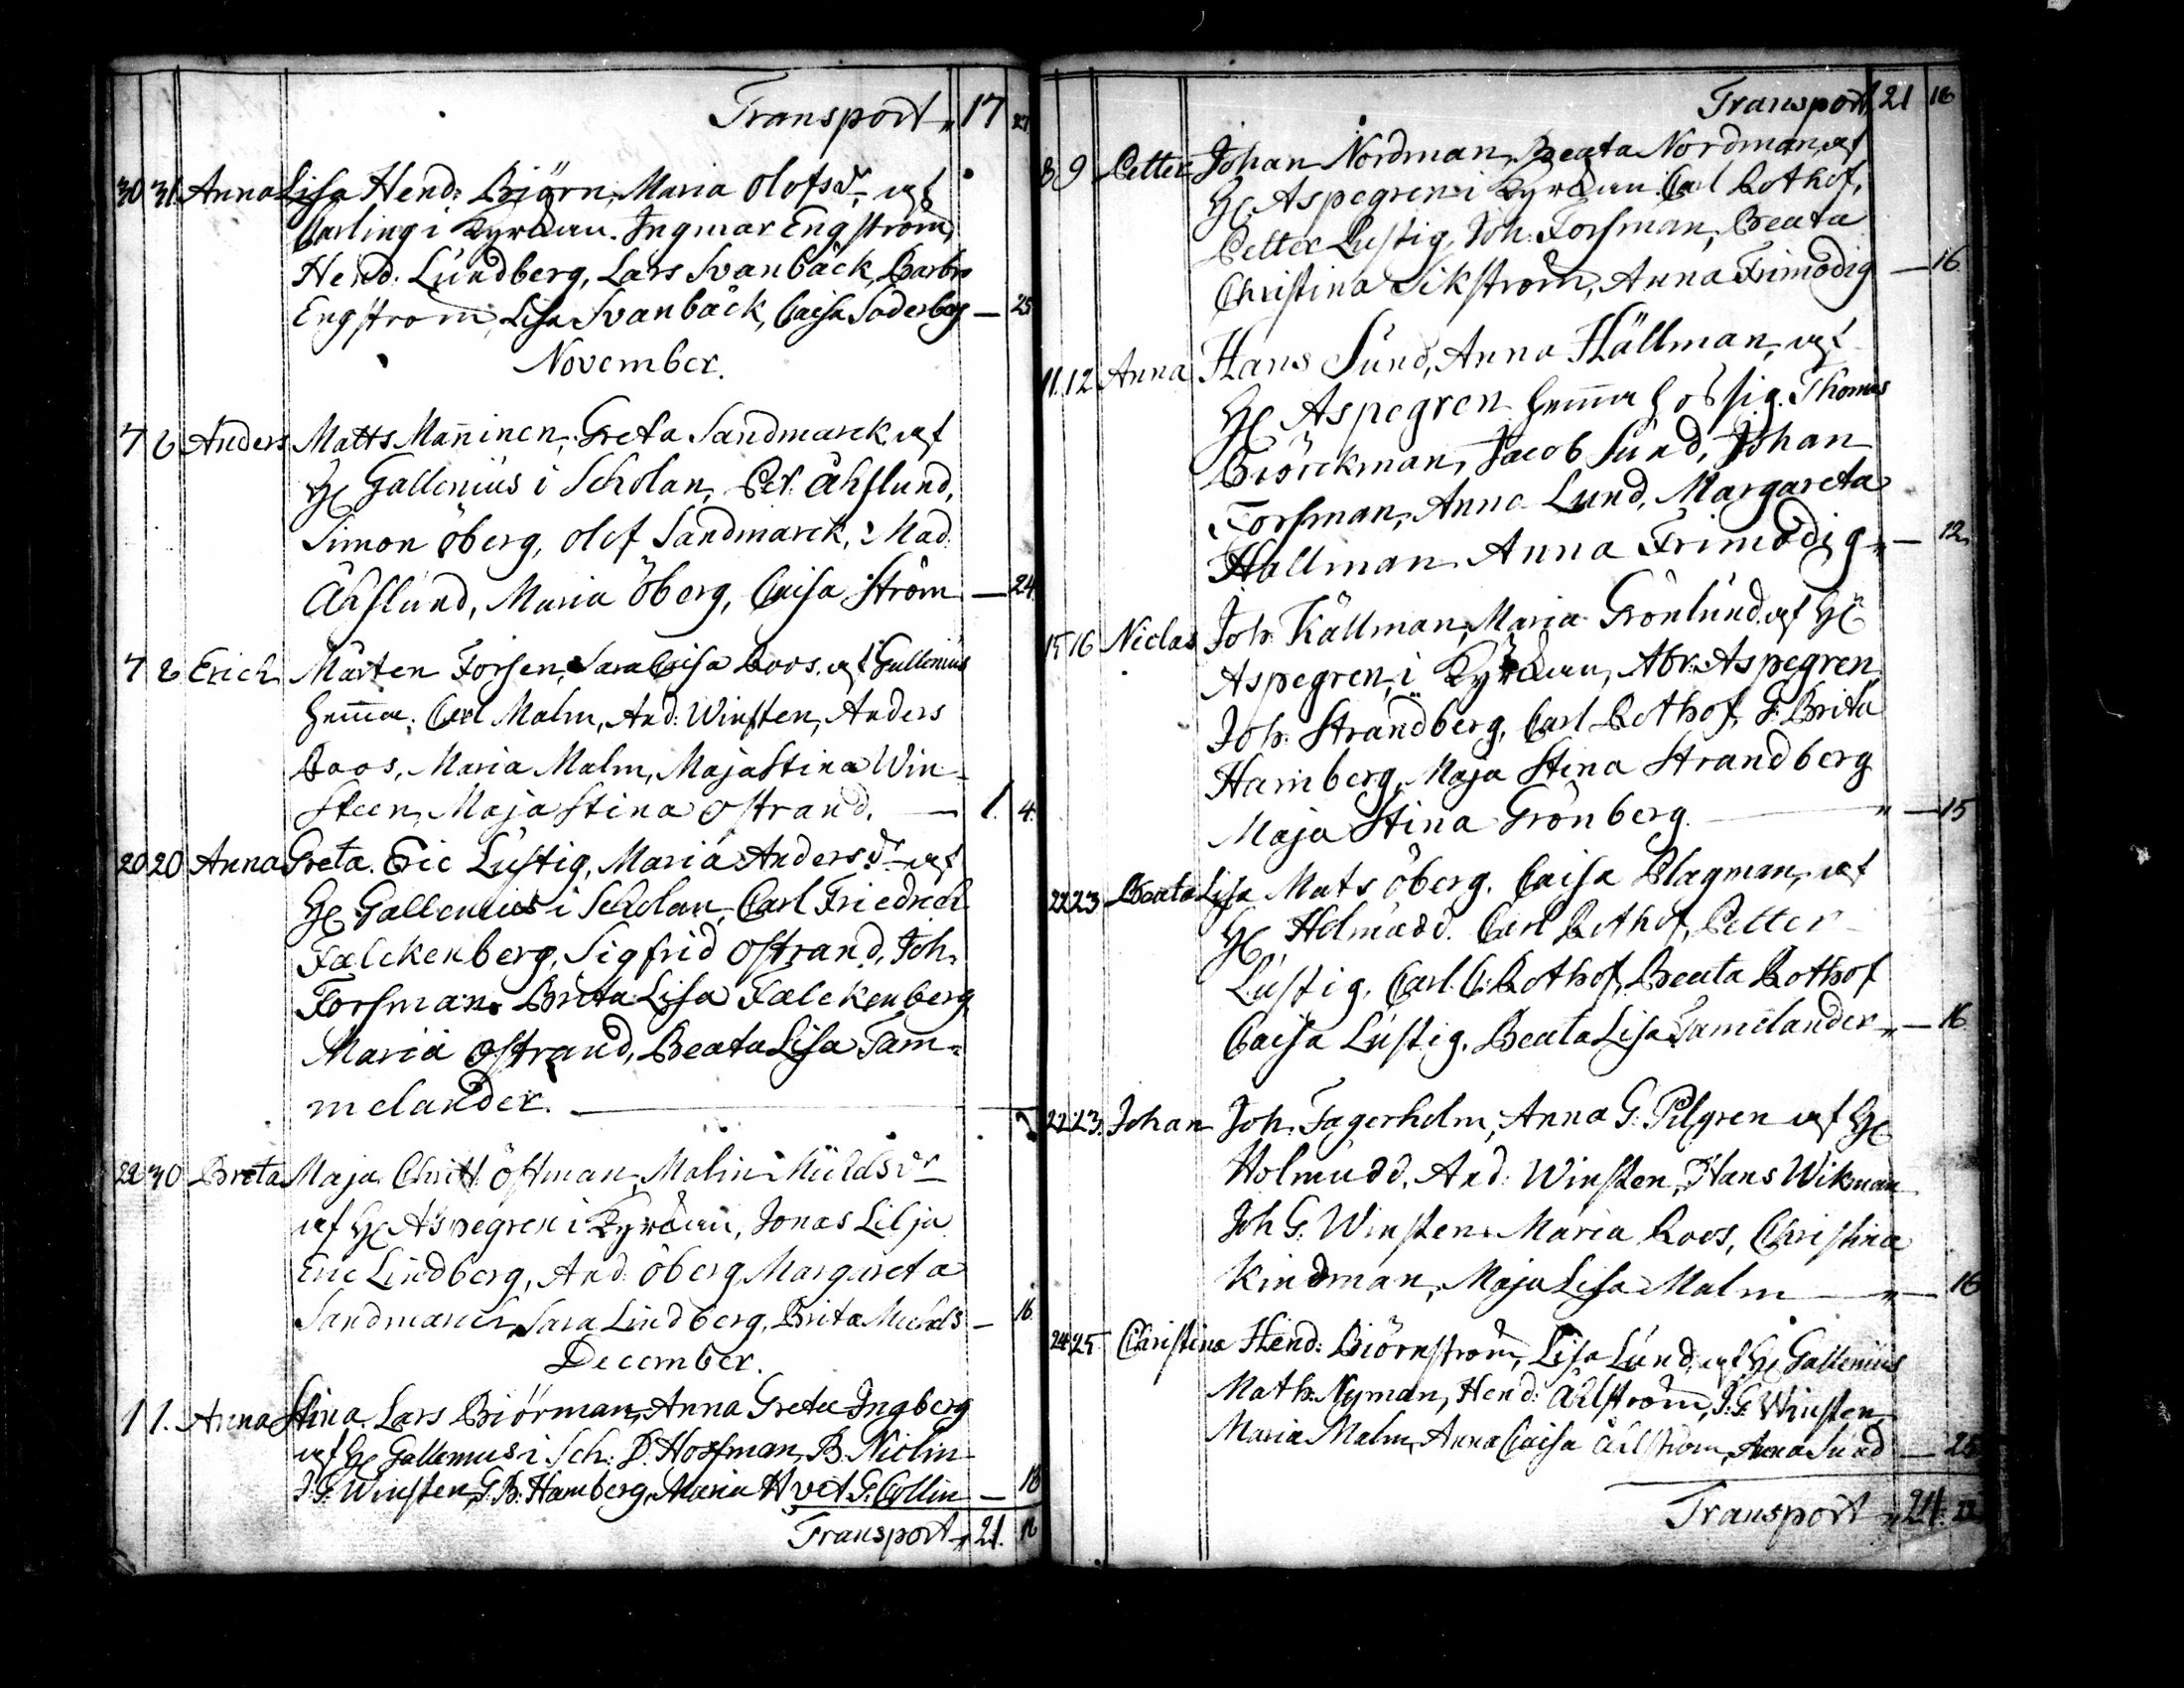 Transport „ 17 27
30 31 Anna Lisa Hend: Biörn, Maria Olofsdr af
Carling i Kyrckan. Ingmar Engström,
Hend. Lundberg, Lars Svanbäck, Barbro
Engström, Lisa Svanbäck, Caisa Söderberg — 25
November.
7 8 Anders Matts Manninen, Greta Sandmarck af
Hr Gallenius i Scholan, Pet. Åhslund,
Simon Öberg, Olof Sandmarck, Mad.
Åhslund, Maria Öberg, Caisa Ström — 24
7 8 Erich Mårten Forsen, Sara Caisa Roos. af Gallenius
hemma. Carl Malm, And: Winsten, Anders
Roos, Maria Malm, Maja Stina Win-
steen, Maja Stina Ostrand. — 1. 4.
20 20 Anna Greta. Eric Lustig, Maria Andersdr af
Hr Gallenius i Scholan, Carl Friedrich
Falckenberg, Sigfrid Ostrand, Joh.
Forsman. Brita Lisa Falckenberg
Maria Ostrand, Beata Lisa Tam-
melander. —
22 30 Breta Maja. Christ. Östman, Malin Michelsdr
af Hr Aspegren i Kyrckan, Jonas Lilja
Eric Lindberg, And. Öberg Margareta
Sandmarck, Sara Lindberg, Brita Michels — 16.
December.
1 1. Anna Stina. Lars Biörman, Anna Greta Ingberg
af Hr Gallenius i Sch: D. Hoffman, B. Niclin
J: G. Winsten, G. B. Hamberg, Maria Hvet G. Collin — 18
Transport „ 21. 18
Transport 21 18
8 9 Petter Johan Nordman, Beata Nordman, af
Hr Aspegren i Kyrckan. Carl Rothof,
Petter Lustig, Joh. Forsman, Beata
Christina Sikström, Anna Frimodig — 16.
11. 12 Anna Hans Sund, Anna Hällman, af
Hr Aspegren hemma hos sig. Thomas
Biörckman, Jacob Sund, Johan
Forsman, Anna Lund, Margareta
Hallman Anna Frimodig „ — 12.
15 16 Niclas Joh. Källman, Maria Grönlund. af Hr
Aspegren, i Kyrckan, Abr. Aspegren
Joh. Strandberg, Carl Rothof, F. Brita
Hamberg, Maja Stina Strandberg
Maja Stina Grönberg. — „ — 15
22 23 Beata Lisa Mats Öberg. Caisa Plagman, af
Hr Holmudd. Carl Rothof, Petter
Lustig, Carl. C: Rothof, Beata Rothof
Caisa Lustig. Beata Lisa Tamelander „ — 16
22 23. Johan Joh. Fagerholm, Anna G: Pilgren af Hr
Holmudd, And: Winsten, Hans Wikman
Joh G: Winsten. Maria Roos, Christina
Kindman, Maja Lisa Malm „ — 16
24 25 Christina Hend: Biörnström, Lisa Lund, af Hr Gallenius
Math. Nyman, Hend: Åhlström, J: G: Winsten
Maria Malm, Anna Caisa Åhlström, Anna Sund — 25
Transport „ 24. 22